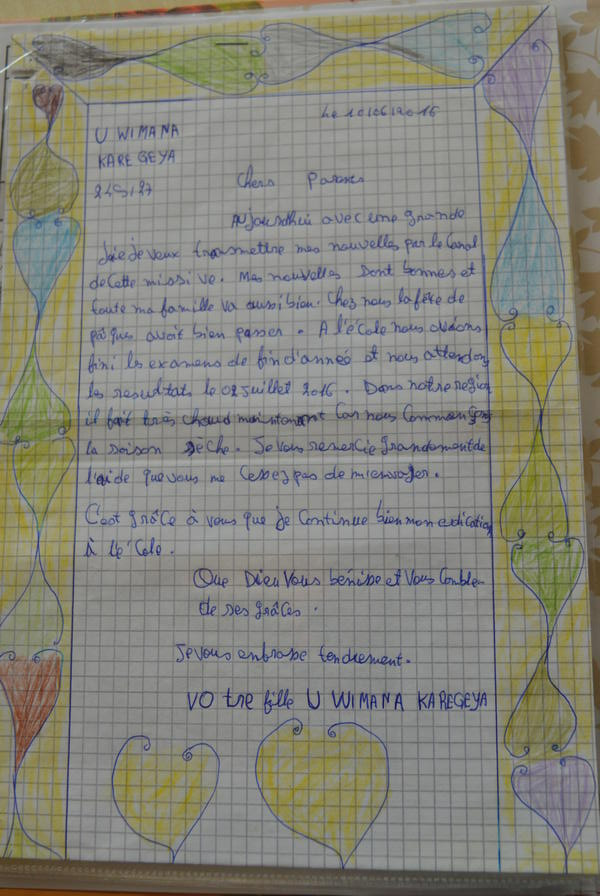 Le 10/06/2016
UWIMANA
KAREGEYA
249127
Chers Parents
Aujourdhui avec une grande
joie je veux transmettre mes nouvelles par le Canal
de Cette missive. Mes nouvelles sont bonnes et
toute ma famille va aussi bien. Chez nous la fête de
pâques avait bien passer. A l'école nous avions
fini les examens de fin d'anneé et nous attendons
les resultats le 02 juillet 2016. Dans notre region
il fait très chaud maintenant Car nous Commençons
la saison sèche. Je vous remercie grandement de
l'aide que vous ne Cessez pas de m'envoyer.
C'est grâce à vous que je Continue bien mon education
à l'é Cole.
Que Dieu Vous bénisse et Vous Comble
de ses grâces.
Je vous embrasse tendrement.
VOtre fille UWIMANA KAREGEYA